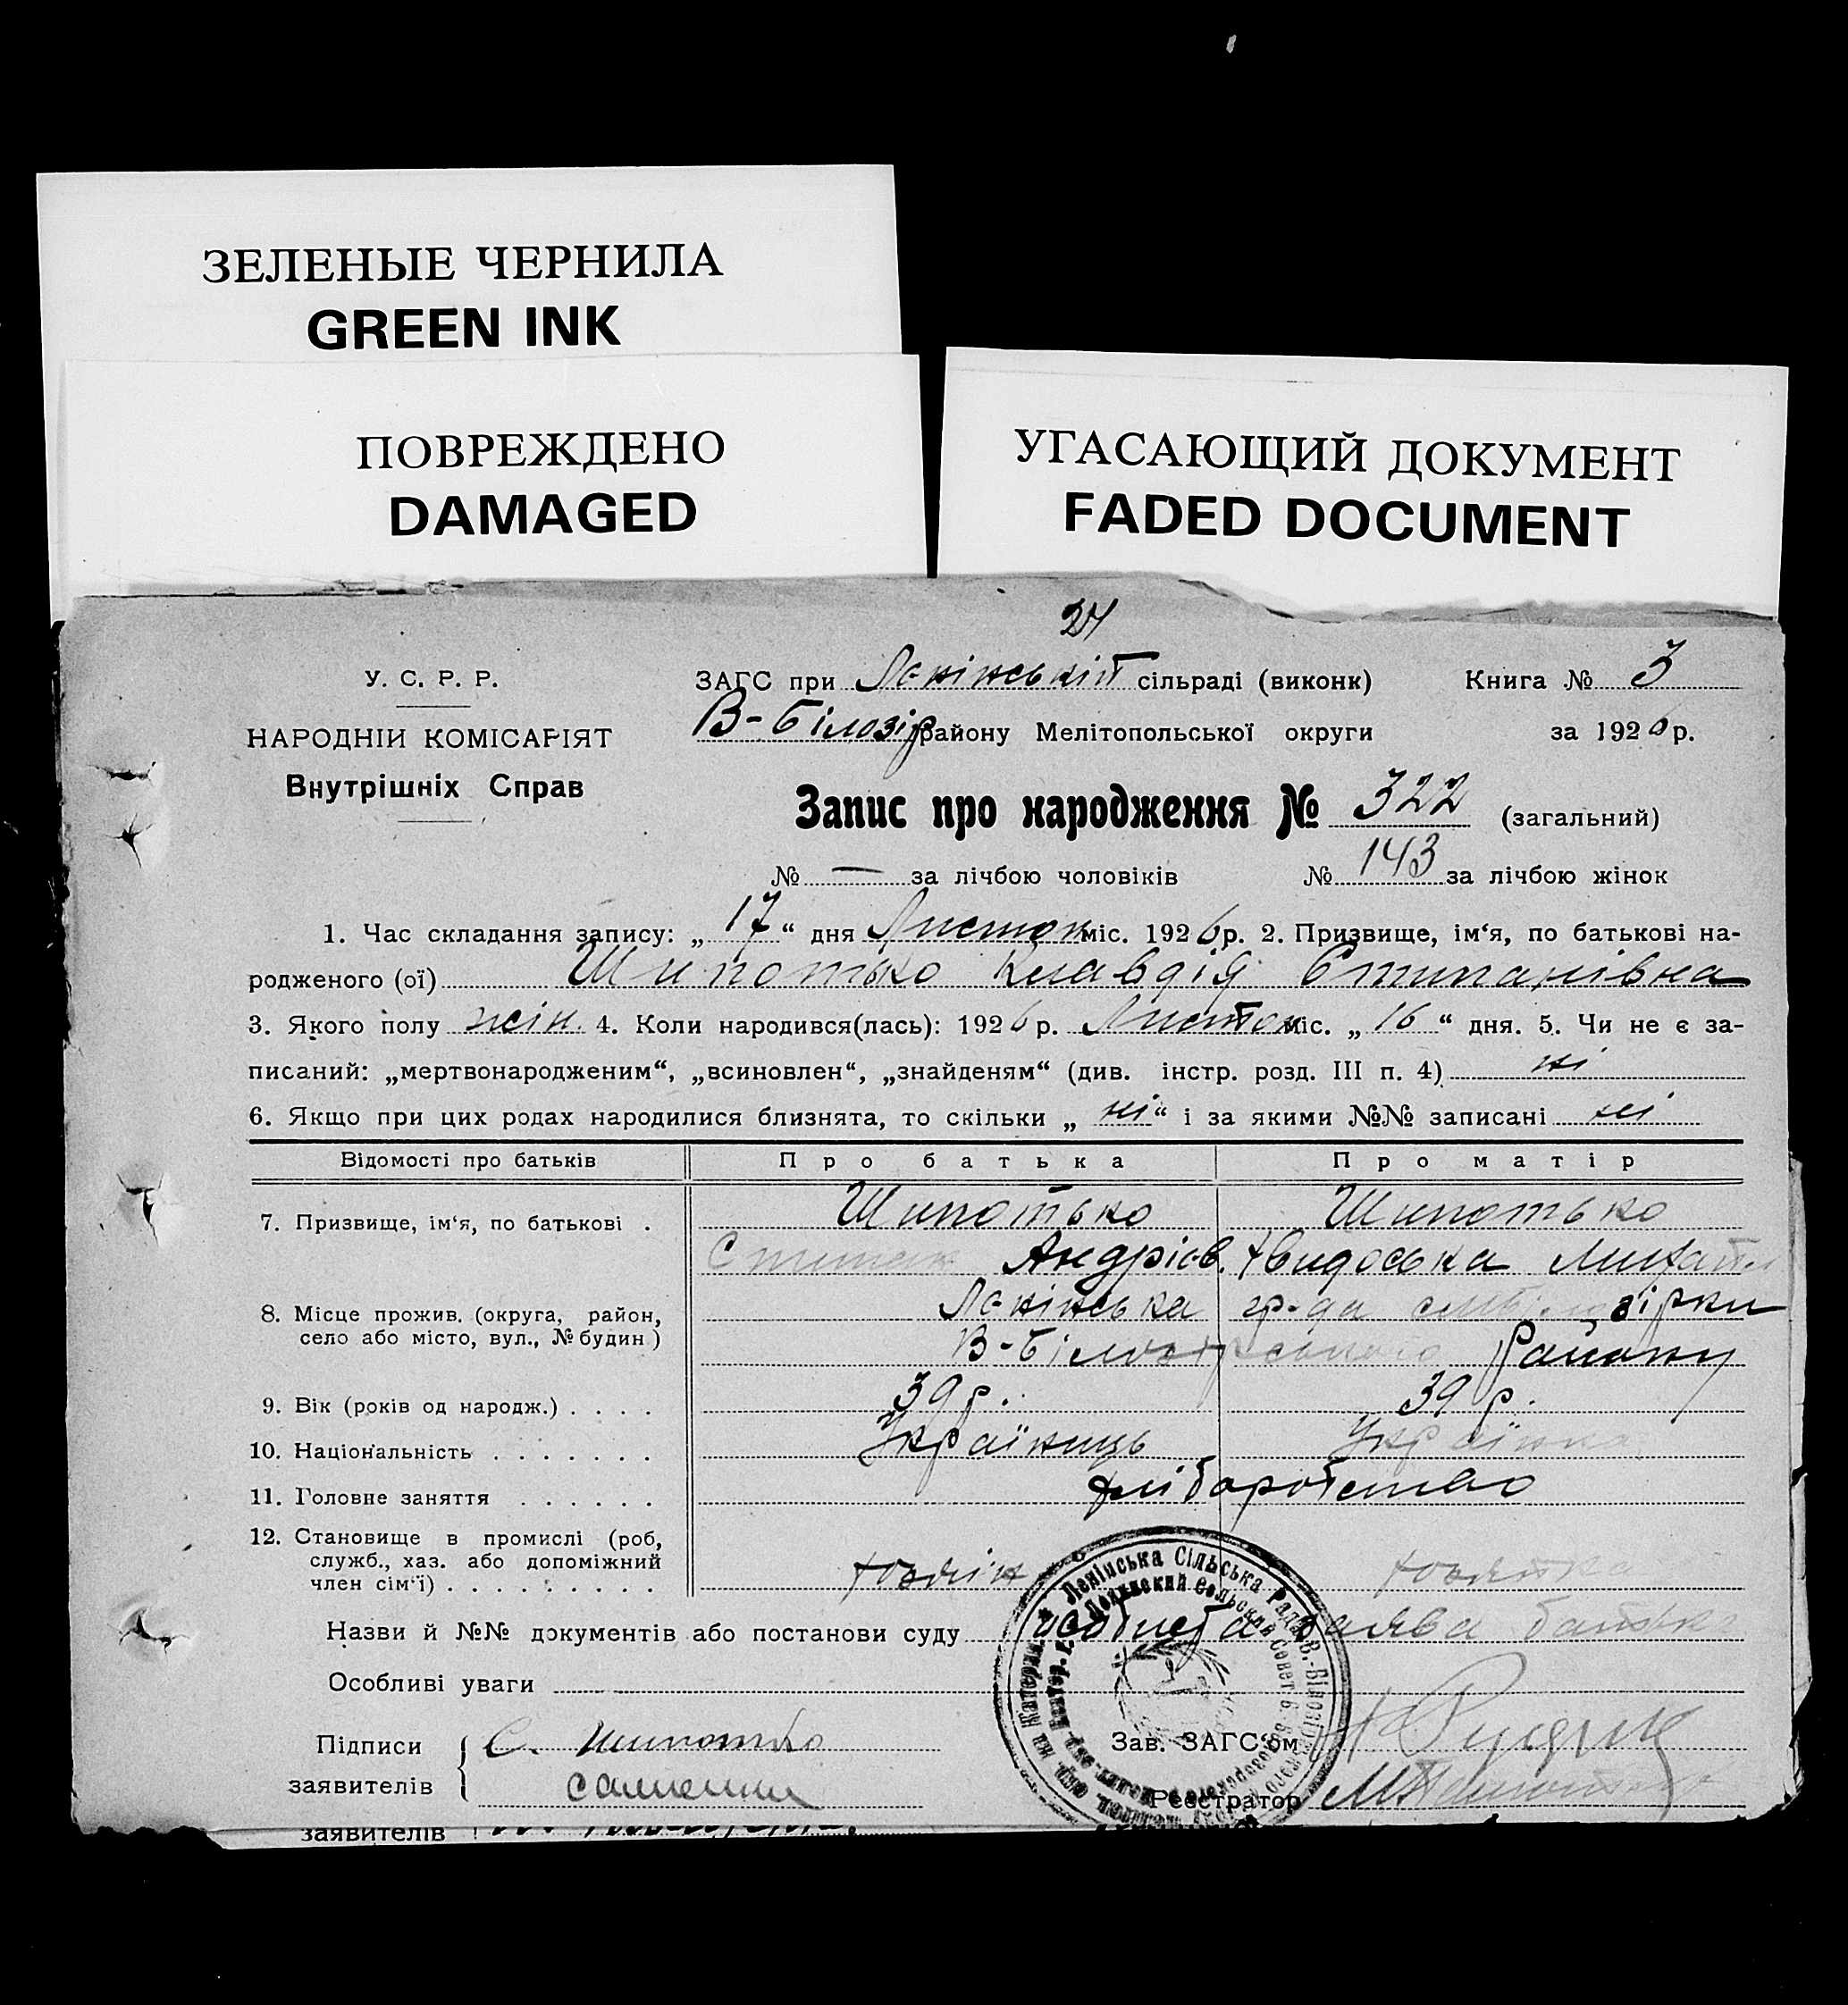 ЗЕЛЕНЫЕ ЧЕРНИЛА
GREEN INK
ПОВРЕЖДЕНО
DAMAGED
УГАСАЮЩИЙ ДОКУМЕНТ
FADED DOCUMENT
24
У. С. Р. Р.
НАРОДНІЙ КОМІСАРІЯТ
Внутрішніх Справ
ЗАГС при Ленінській сільраді (виконк) Книга № 3
В-Білозір району Мелітопольської округи за 1926 р.
Запис про народження № 322 (загальний)
№ — за лічбою чоловіків № 143 за лічбою жінок
1. Час складання запису: „17“ дня Листоп міс. 1926 р. 2. Призвище, ім‘я, по батькові на-
родженого (ої) Шипотько Клавдія Стипанівна
3. Якого полу жін. 4. Коли народився(лась): 1926 р. Листоп міс. „16“ дня. 5. Чи не є за-
писаний: „мертвонародженим“, „всиновлен“, „знайденям“ (див. інстр. розд. III п. 4) ні
6. Якщо при цих родах народилися близнята, то скільки „ні“ і за якими №№ записані ні
Відомості про батьків Про батька Про матір
7. Призвище, ім‘я, по батькові . Шипотько Шипотько
Стипан Андріев.
8. Місце прожив. (округа, район, Ленінська
село або місто, вул., № будин) В-Білозірського Району
9. Вік (років од народж.) . . . . 39 р. 39 р.
10. Національність . . . . . . . Українець Українка
11. Головне заняття . . . . . . хліборобство
12. Становище в промислі (роб,
служб., хаз. або допоміжний
член сім‘ї) . . . . . . . . . хазяїн хазяйка
Назви й №№ документів або постанови суду особиста заява батька
Особливі уваги
Підписи С. Шипотько Зав. ЗАГС‘ом
заявителів Реєстратор
Ленінська Сільська Рада В.-Білозірського
заявителів